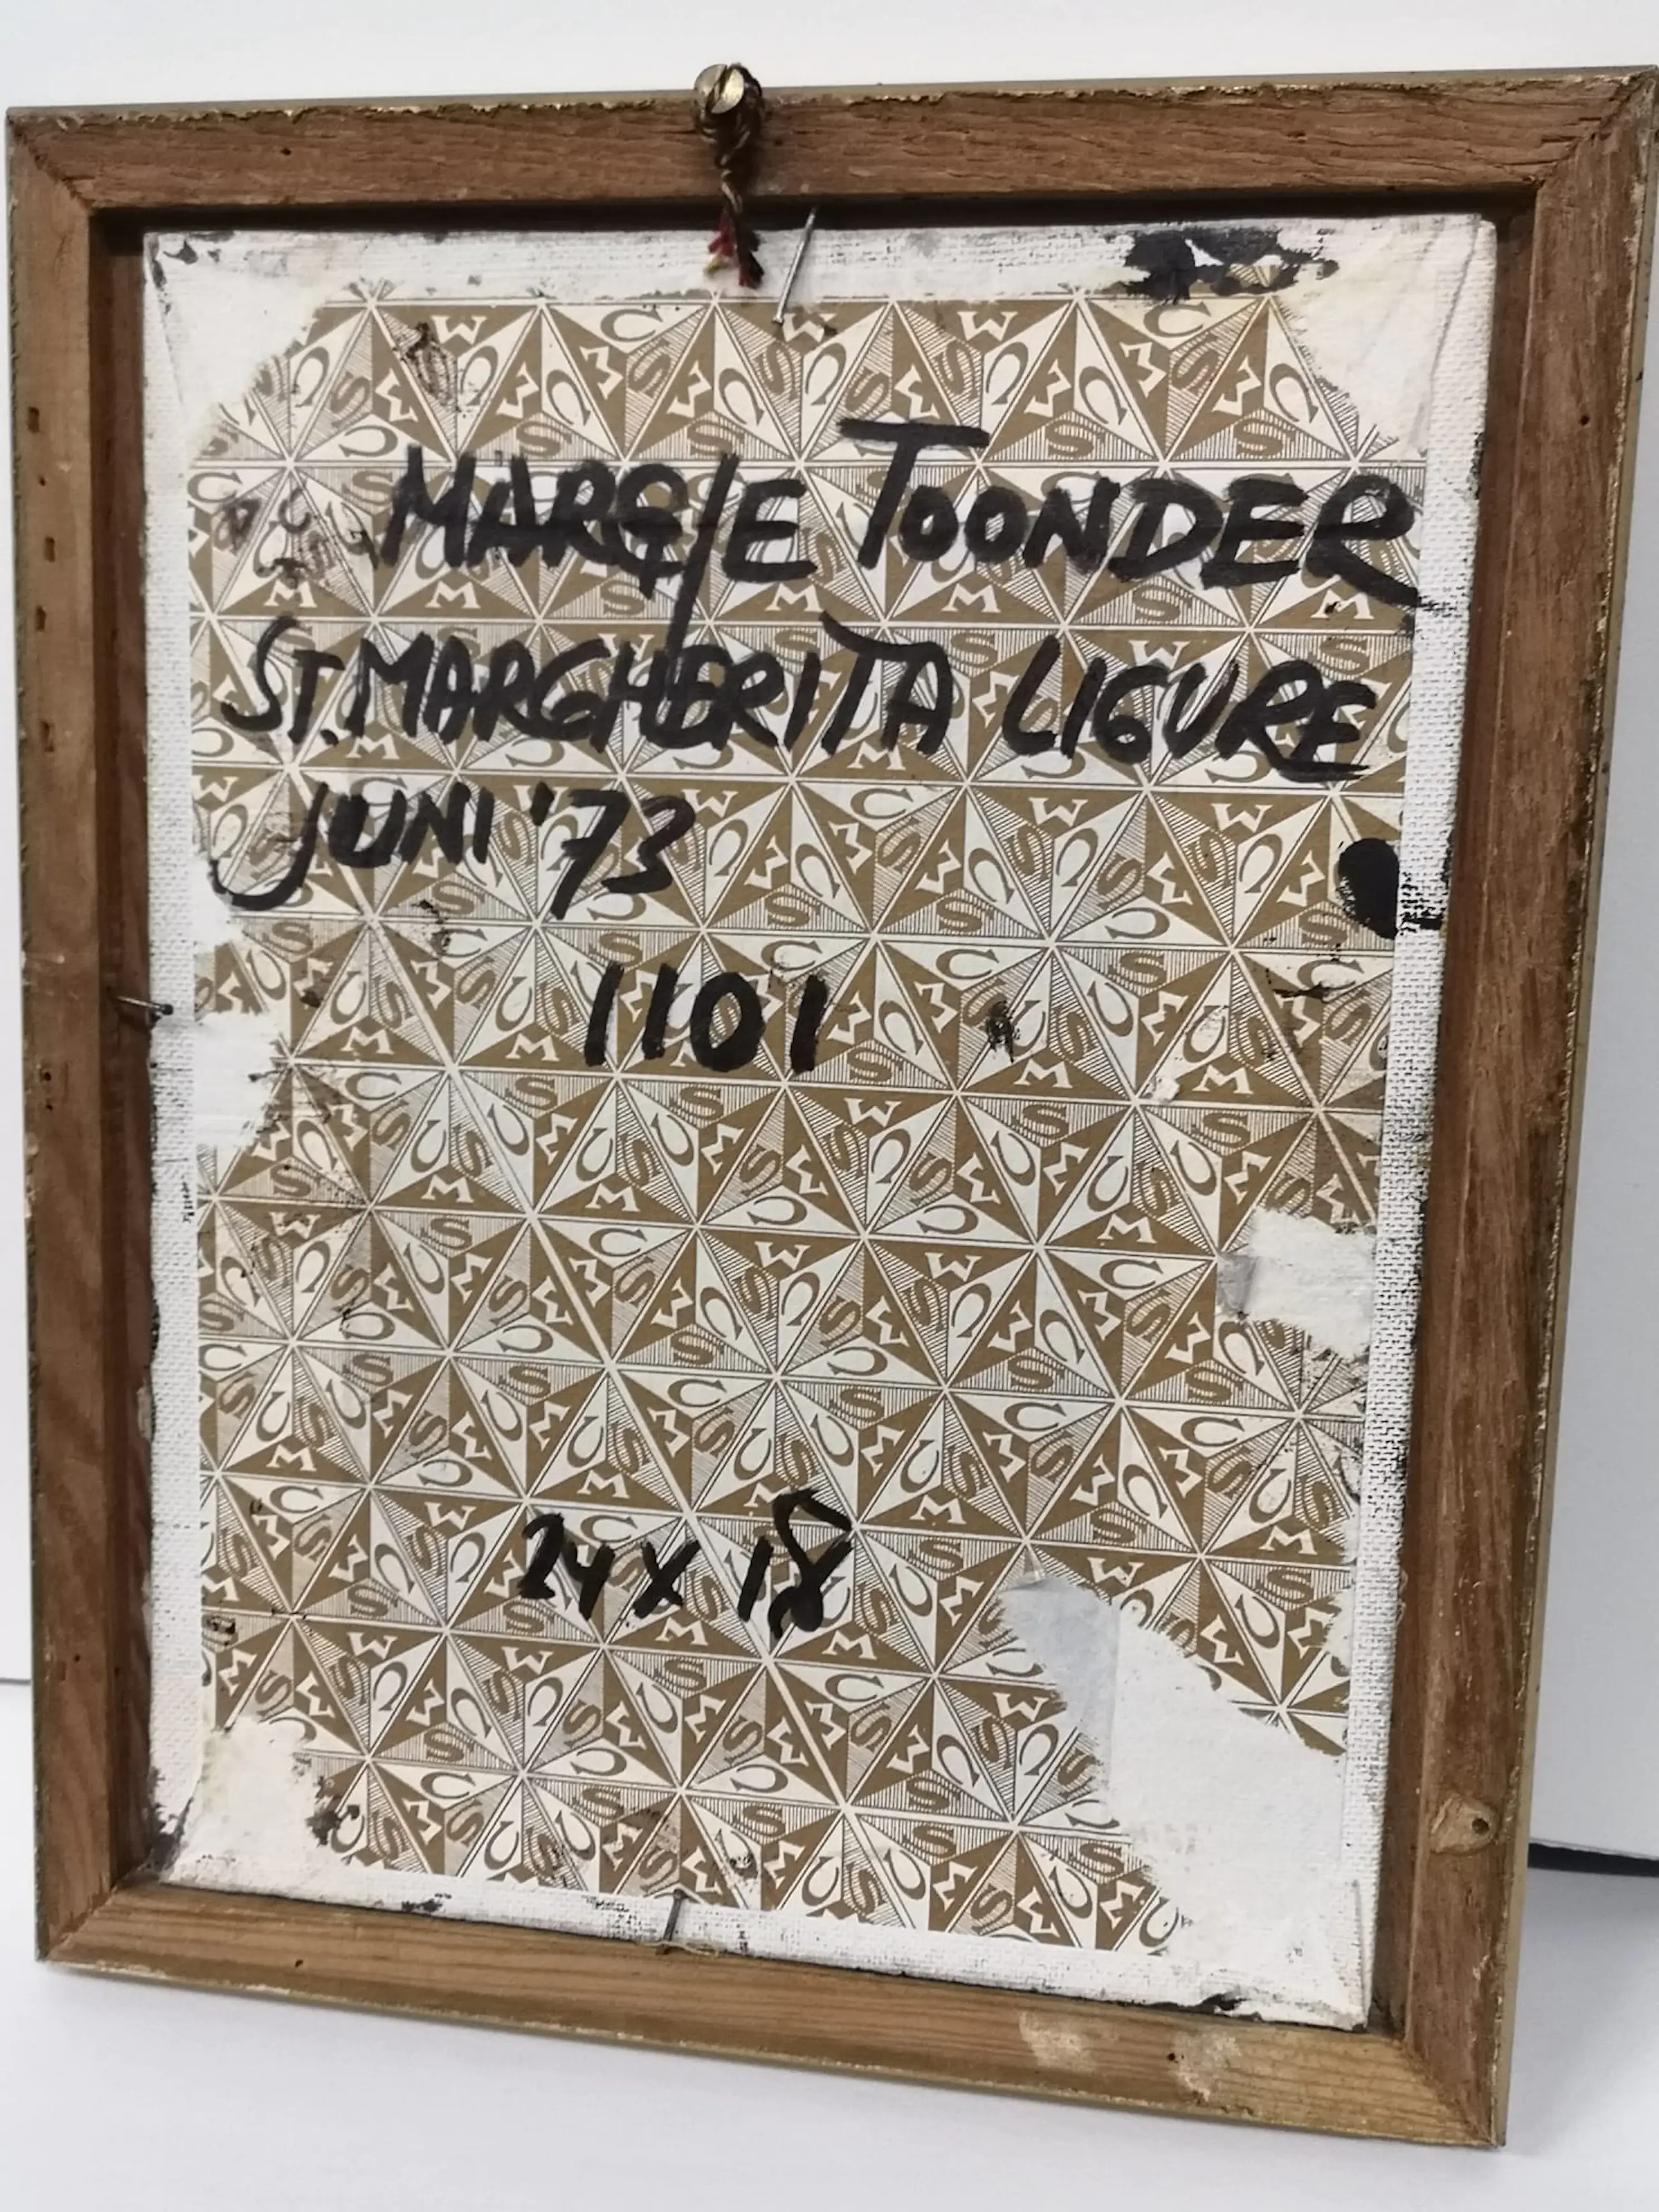 MARGIE TOONDER
ST. MARGHERITA LIGURE
JUNI '73
1101
24 X 18